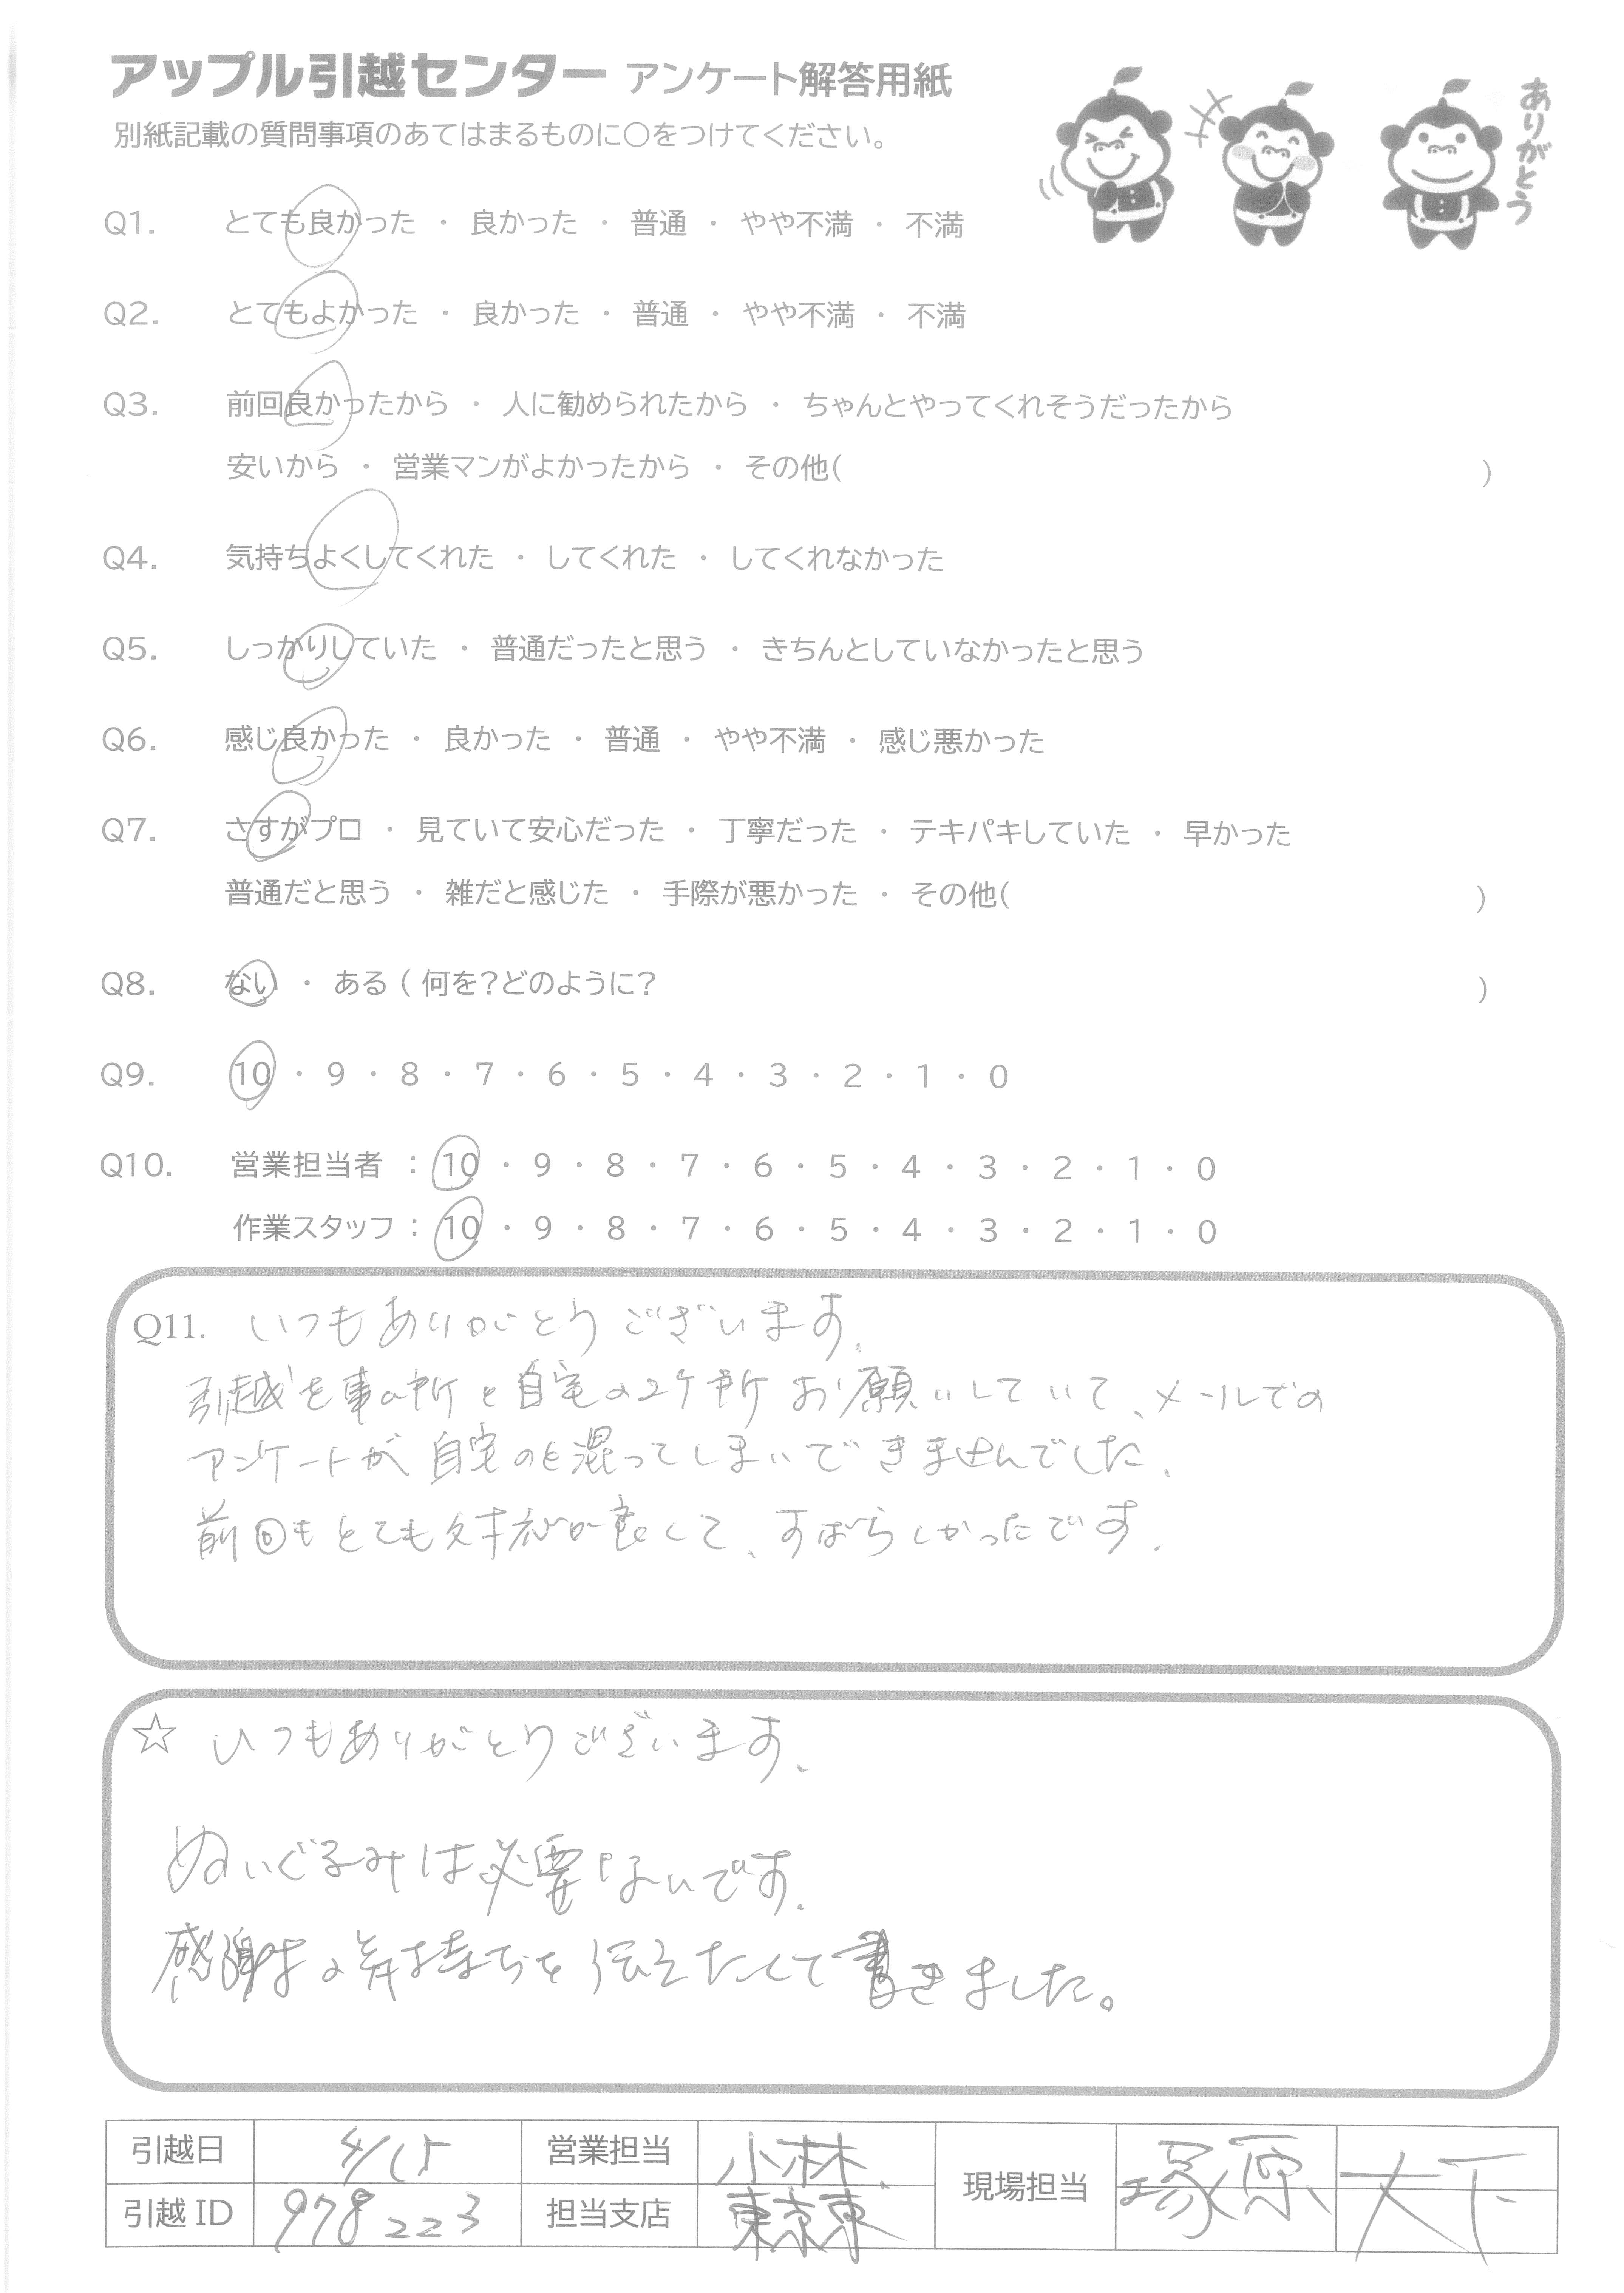 アップル引越センター アンケート解答用紙
別紙記載の質問事項のあてはまるものに○をつけてください。
ありがとう
Q1. とても良かった ・ 良かった ・ 普通 ・ やや不満 ・ 不満
Q2. とてもよかった ・ 良かった ・ 普通 ・ やや不満 ・ 不満
Q3. 前回良かったから ・ 人に勧められたから ・ ちゃんとやってくれそうだったから
安いから ・ 営業マンがよかったから ・ その他( )
Q4. 気持ちよくしてくれた ・ してくれた ・ してくれなかった
Q5. しっかりしていた ・ 普通だったと思う ・ きちんとしていなかったと思う
Q6. 感じ良かった ・ 良かった ・ 普通 ・ やや不満 ・ 感じ悪かった
Q7. さすがプロ ・ 見ていて安心だった ・ 丁寧だった ・ テキパキしていた ・ 早かった
普通だと思う ・ 雑だと感じた ・ 手際が悪かった ・ その他( )
Q8. ない ・ ある ( 何を?どのように? )
Q9. 10 ・ 9 ・ 8 ・ 7 ・ 6 ・ 5 ・ 4 ・ 3 ・ 2 ・ 1 ・ 0
Q10. 営業担当者 : 10 ・ 9 ・ 8 ・ 7 ・ 6 ・ 5 ・ 4 ・ 3 ・ 2 ・ 1 ・ 0
作業スタッフ : 10 ・ 9 ・ 8 ・ 7 ・ 6 ・ 5 ・ 4 ・ 3 ・ 2 ・ 1 ・ 0
Q11. いつもありがとうございます。
引越を事ム所と自宅の2ケ所お願いしていて、メールでの
アンケートが自宅のと混ってしまいできませんでした。
前回もとても対応が良くて、すばらしかったです。
☆ いつもありがとうございます。
ぬいぐるみは必要ないです。
感謝の気持ちを伝えたくて書きました。
引越日 4/15 営業担当 小林 現場担当 塚原 大下
引越ID 978223 担当支店 東京東